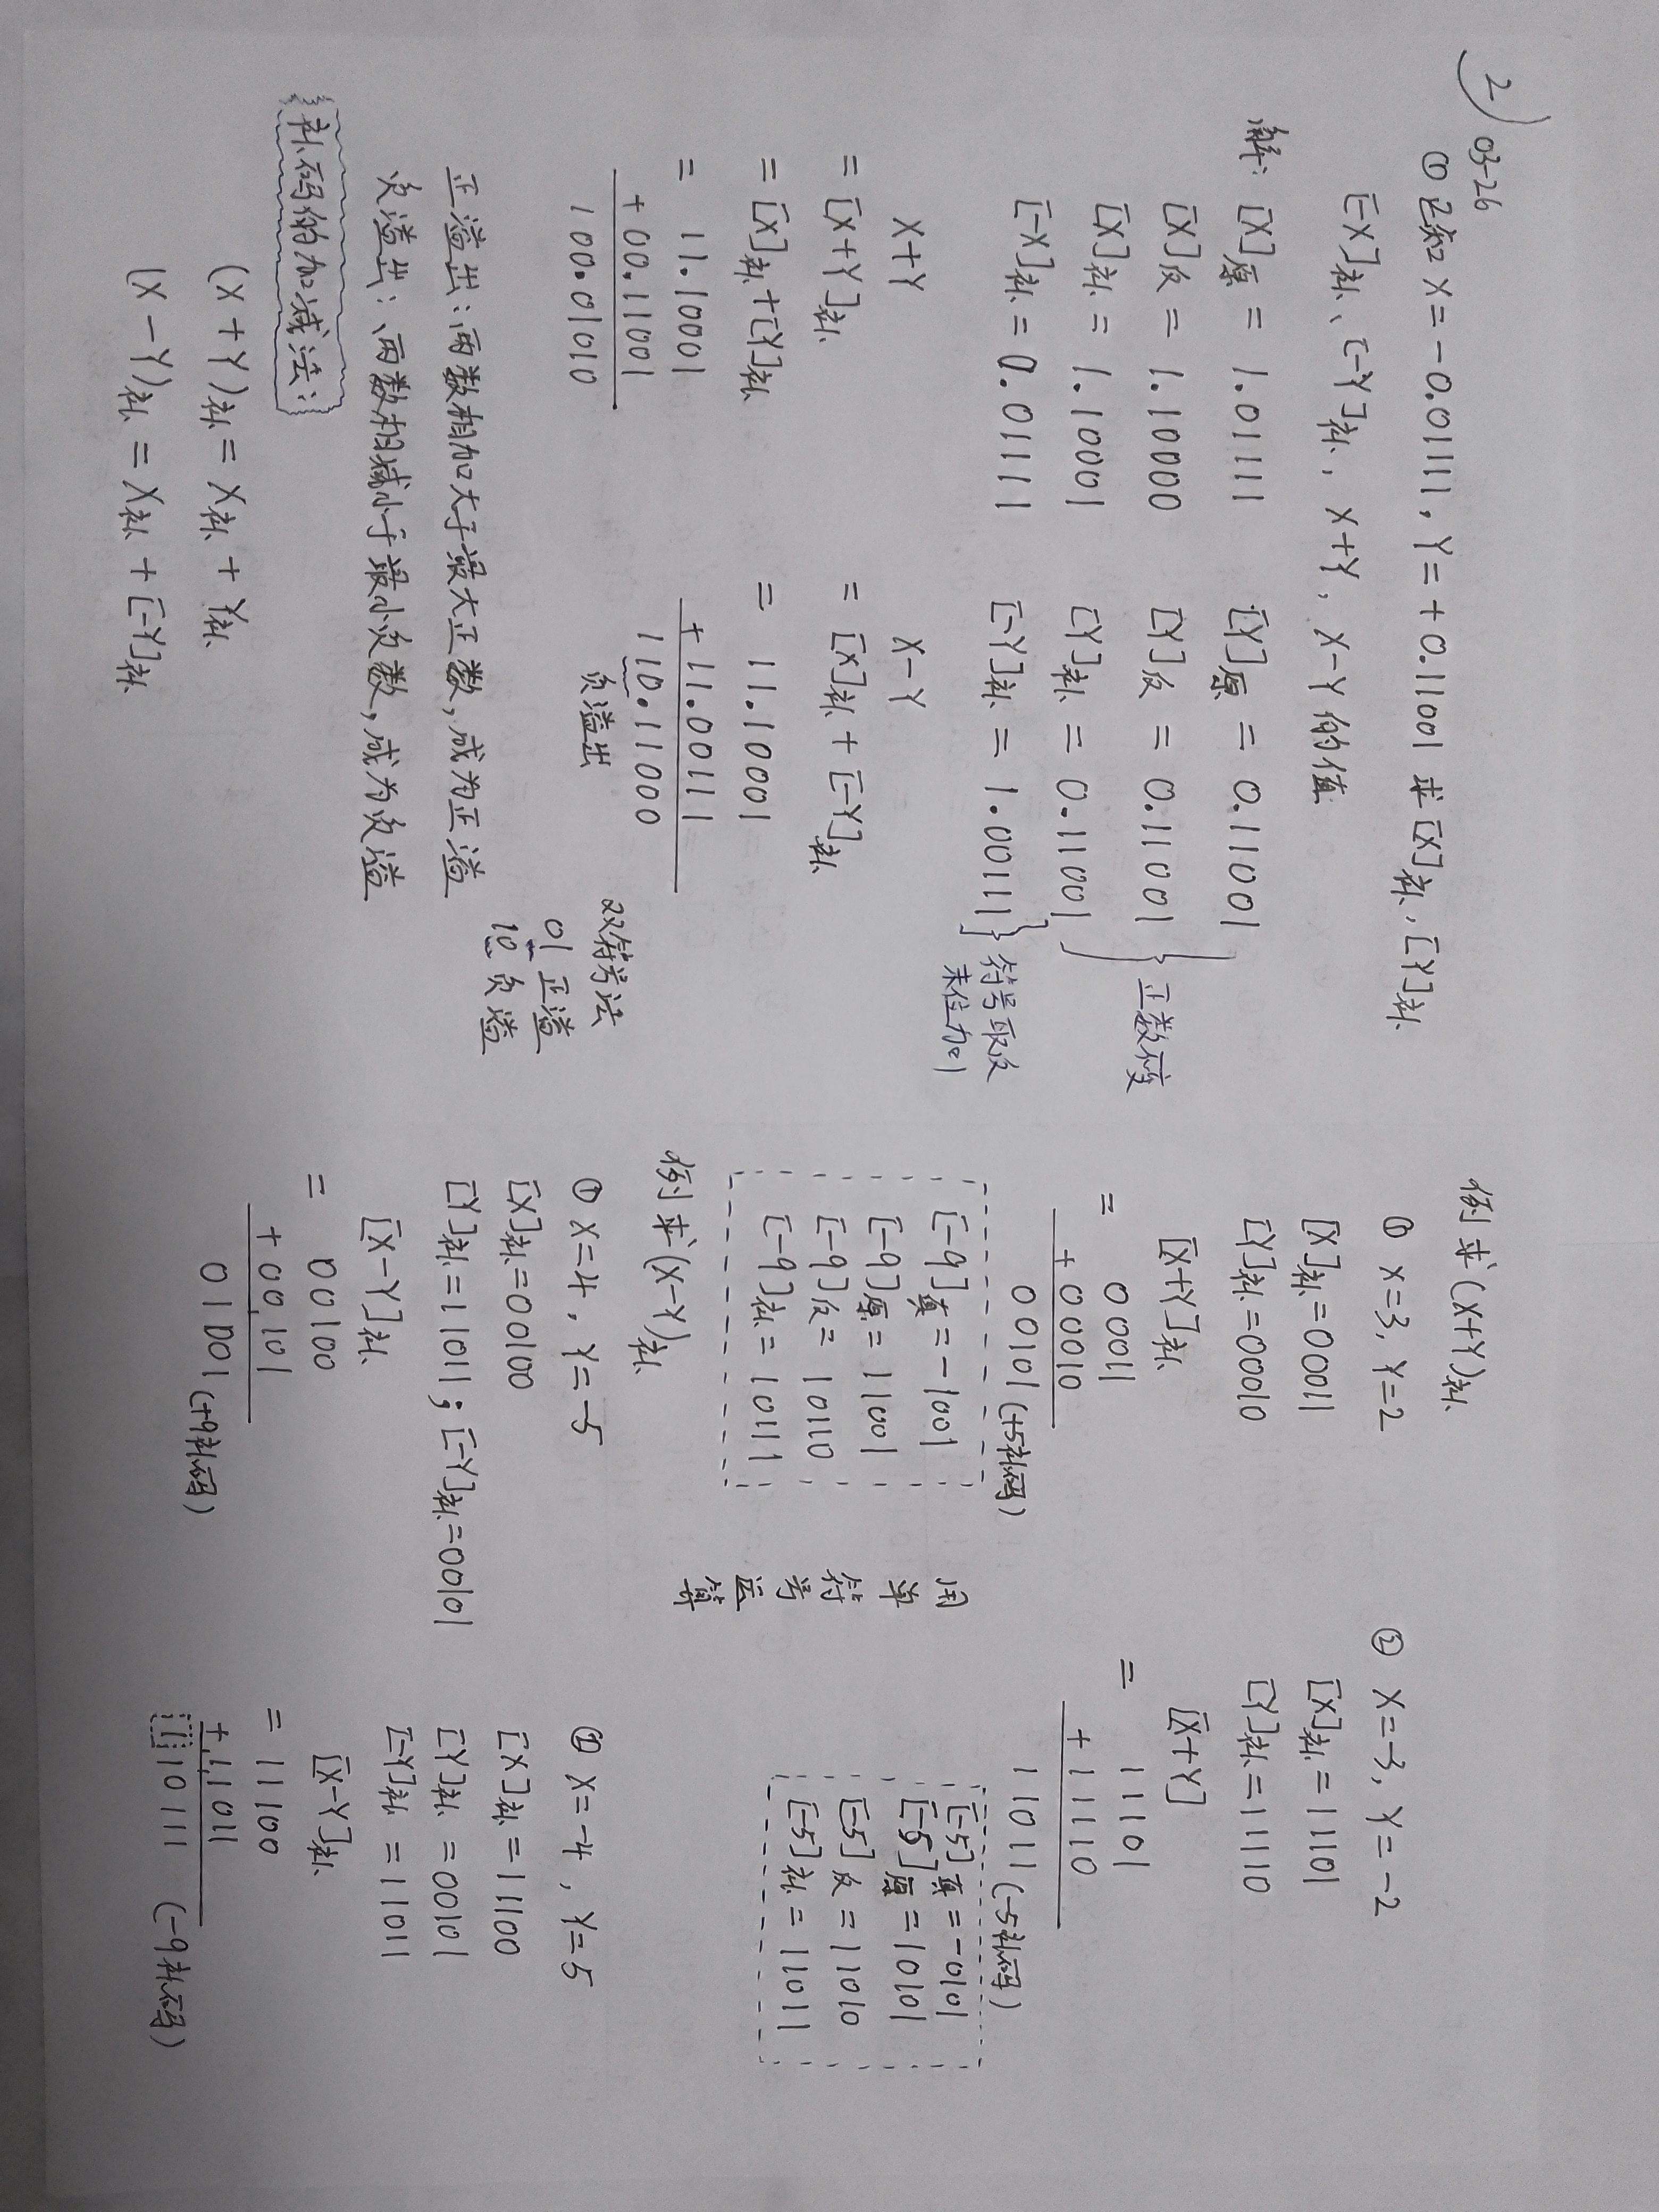 2) 03-26
① 已知 X=-0.01111, Y=+0.11001 求[X]补, [Y]补
[-X]补、[-Y]补, X+Y, X-Y 的值
解: [X]原 = 1.01111 [Y]原 = 0.11001
[X]反 = 1.10000 [Y]反 = 0.11001
[X]补 = 1.10001 [Y]补 = 0.11001
正数不变
[-X]补 = 0.01111 [-Y]补 = 1.00111
符号取反
末位加1
X+Y
= [X+Y]补
= [X]补+[Y]补
= 11.10001
+ 00.11001
100.01010
X-Y
= [X]补 + [-Y]补
= 11.10001
+ 11.00111
110.11000
负溢出
双符号法
01 正溢
10 负溢
正溢出: 两数相加大于最大正数, 成为正溢
负溢出: 两数相减小于最小负数, 成为负溢
补码的加减法:
(X+Y)补 = X补 + Y补
(X-Y)补 = X补 + [-Y]补
例 求(X+Y)补
① X=3, Y=2
[X]补=00011
[Y]补=00010
[X+Y]补
= 00011
+ 00010
00101 (+5补码)
[-9]真=-1001
[-9]原=11001
[-9]反=10110
[-9]补=10111
用单符号运算
② X=-3, Y=-2
[X]补=11101
[Y]补=11110
[X+Y]
= 11101
+ 11110
11011 (-5补码)
[-5]真=-0101
[-5]原=10101
[-5]反=11010
[-5]补=11011
例 求(X-Y)补
① X=4, Y=-5
[X]补=00100
[Y]补=11011; [-Y]补=00101
[X-Y]补
= 00100
+ 00101
01001 (+9补码)
② X=-4, Y=5
[X]补=11100
[Y]补=00101
[-Y]补=11011
[X-Y]补
= 11100
+ 11011
110111 (-9补码)